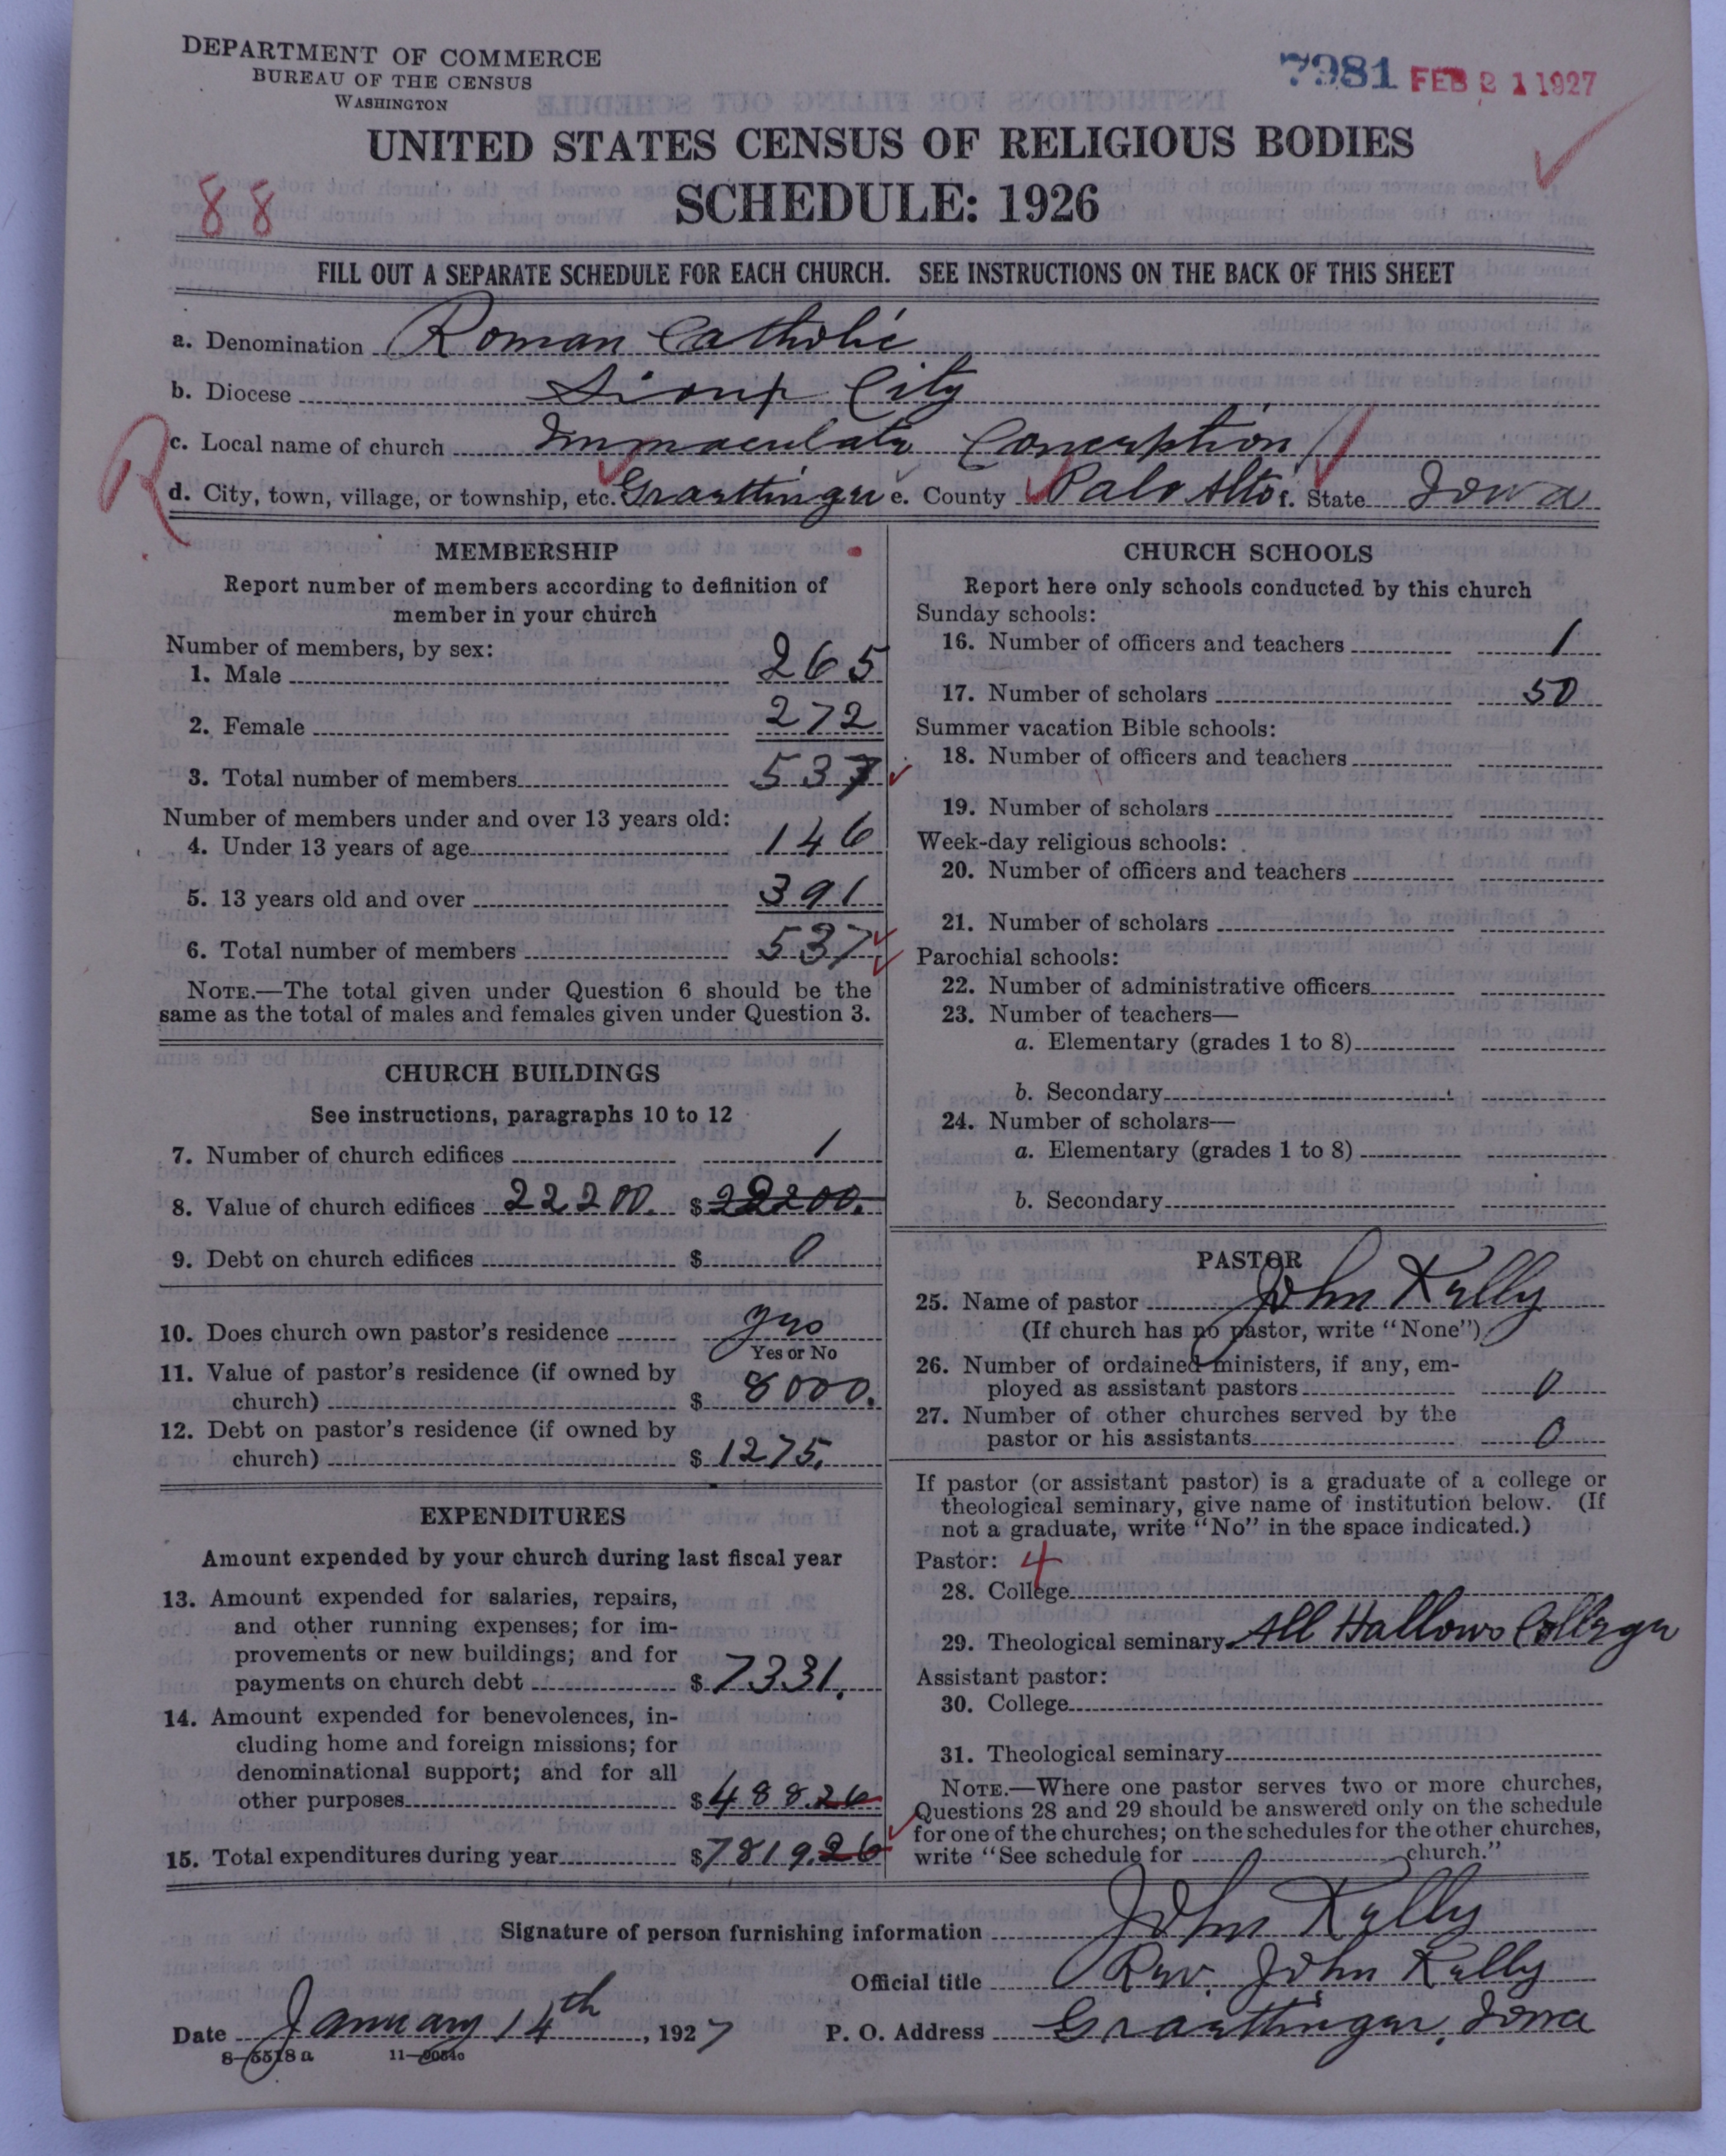 DEPARTMENT OF COMMERCE
BUREAU OF THE CENSUS
WASHINGTON
7981 FEB 21 1927
UNITED STATES CENSUS OF RELIGIOUS BODIES
SCHEDULE: 1926
88
FILL OUT A SEPARATE SCHEDULE FOR EACH CHURCH. SEE INSTRUCTIONS ON THE BACK OF THIS SHEET
a. Denomination Roman Catholic
b. Diocese Sioux City
c. Local name of church Immaculate Conception
R
d. City, town, village, or township, etc. Graettinger e. County Palo Alto f. State Iowa
MEMBERSHIP
Report number of members according to definition of
member in your church
Number of members, by sex:
1. Male 265
2. Female 272
3. Total number of members 537
Number of members under and over 13 years old:
4. Under 13 years of age 146
5. 13 years old and over 391
6. Total number of members 537
NOTE.—The total given under Question 6 should be the
same as the total of males and females given under Question 3.
CHURCH BUILDINGS
See instructions, paragraphs 10 to 12
7. Number of church edifices 1
8. Value of church edifices 22200. $ 22200.
9. Debt on church edifices $ 0
10. Does church own pastor's residence yes
Yes or No
11. Value of pastor's residence (if owned by
church) $ 8000.
12. Debt on pastor's residence (if owned by
church) $ 1275.
EXPENDITURES
Amount expended by your church during last fiscal year
13. Amount expended for salaries, repairs,
and other running expenses; for im-
provements or new buildings; and for
payments on church debt $ 7331.
14. Amount expended for benevolences, in-
cluding home and foreign missions; for
denominational support; and for all
other purposes $ 488.26
15. Total expenditures during year $ 7819.26
CHURCH SCHOOLS
Report here only schools conducted by this church
Sunday schools:
16. Number of officers and teachers 1
17. Number of scholars 50
Summer vacation Bible schools:
18. Number of officers and teachers
19. Number of scholars
Week-day religious schools:
20. Number of officers and teachers
21. Number of scholars
Parochial schools:
22. Number of administrative officers
23. Number of teachers—
a. Elementary (grades 1 to 8)
b. Secondary
24. Number of scholars—
a. Elementary (grades 1 to 8)
b. Secondary
PASTOR
25. Name of pastor John Kelly
(If church has no pastor, write "None")
26. Number of ordained ministers, if any, em-
ployed as assistant pastors 0
27. Number of other churches served by the
pastor or his assistants 0
If pastor (or assistant pastor) is a graduate of a college or
theological seminary, give name of institution below. (If
not a graduate, write "No" in the space indicated.)
Pastor: 4
28. College
29. Theological seminary All Hallows College
Assistant pastor:
30. College
31. Theological seminary
NOTE.—Where one pastor serves two or more churches,
Questions 28 and 29 should be answered only on the schedule
for one of the churches; on the schedules for the other churches,
write "See schedule for church."
Signature of person furnishing information John Kelly
Official title Rev. John Kelly
Date January 14th, 1927 P. O. Address Graettinger, Iowa
8—5518 a 11—9054o